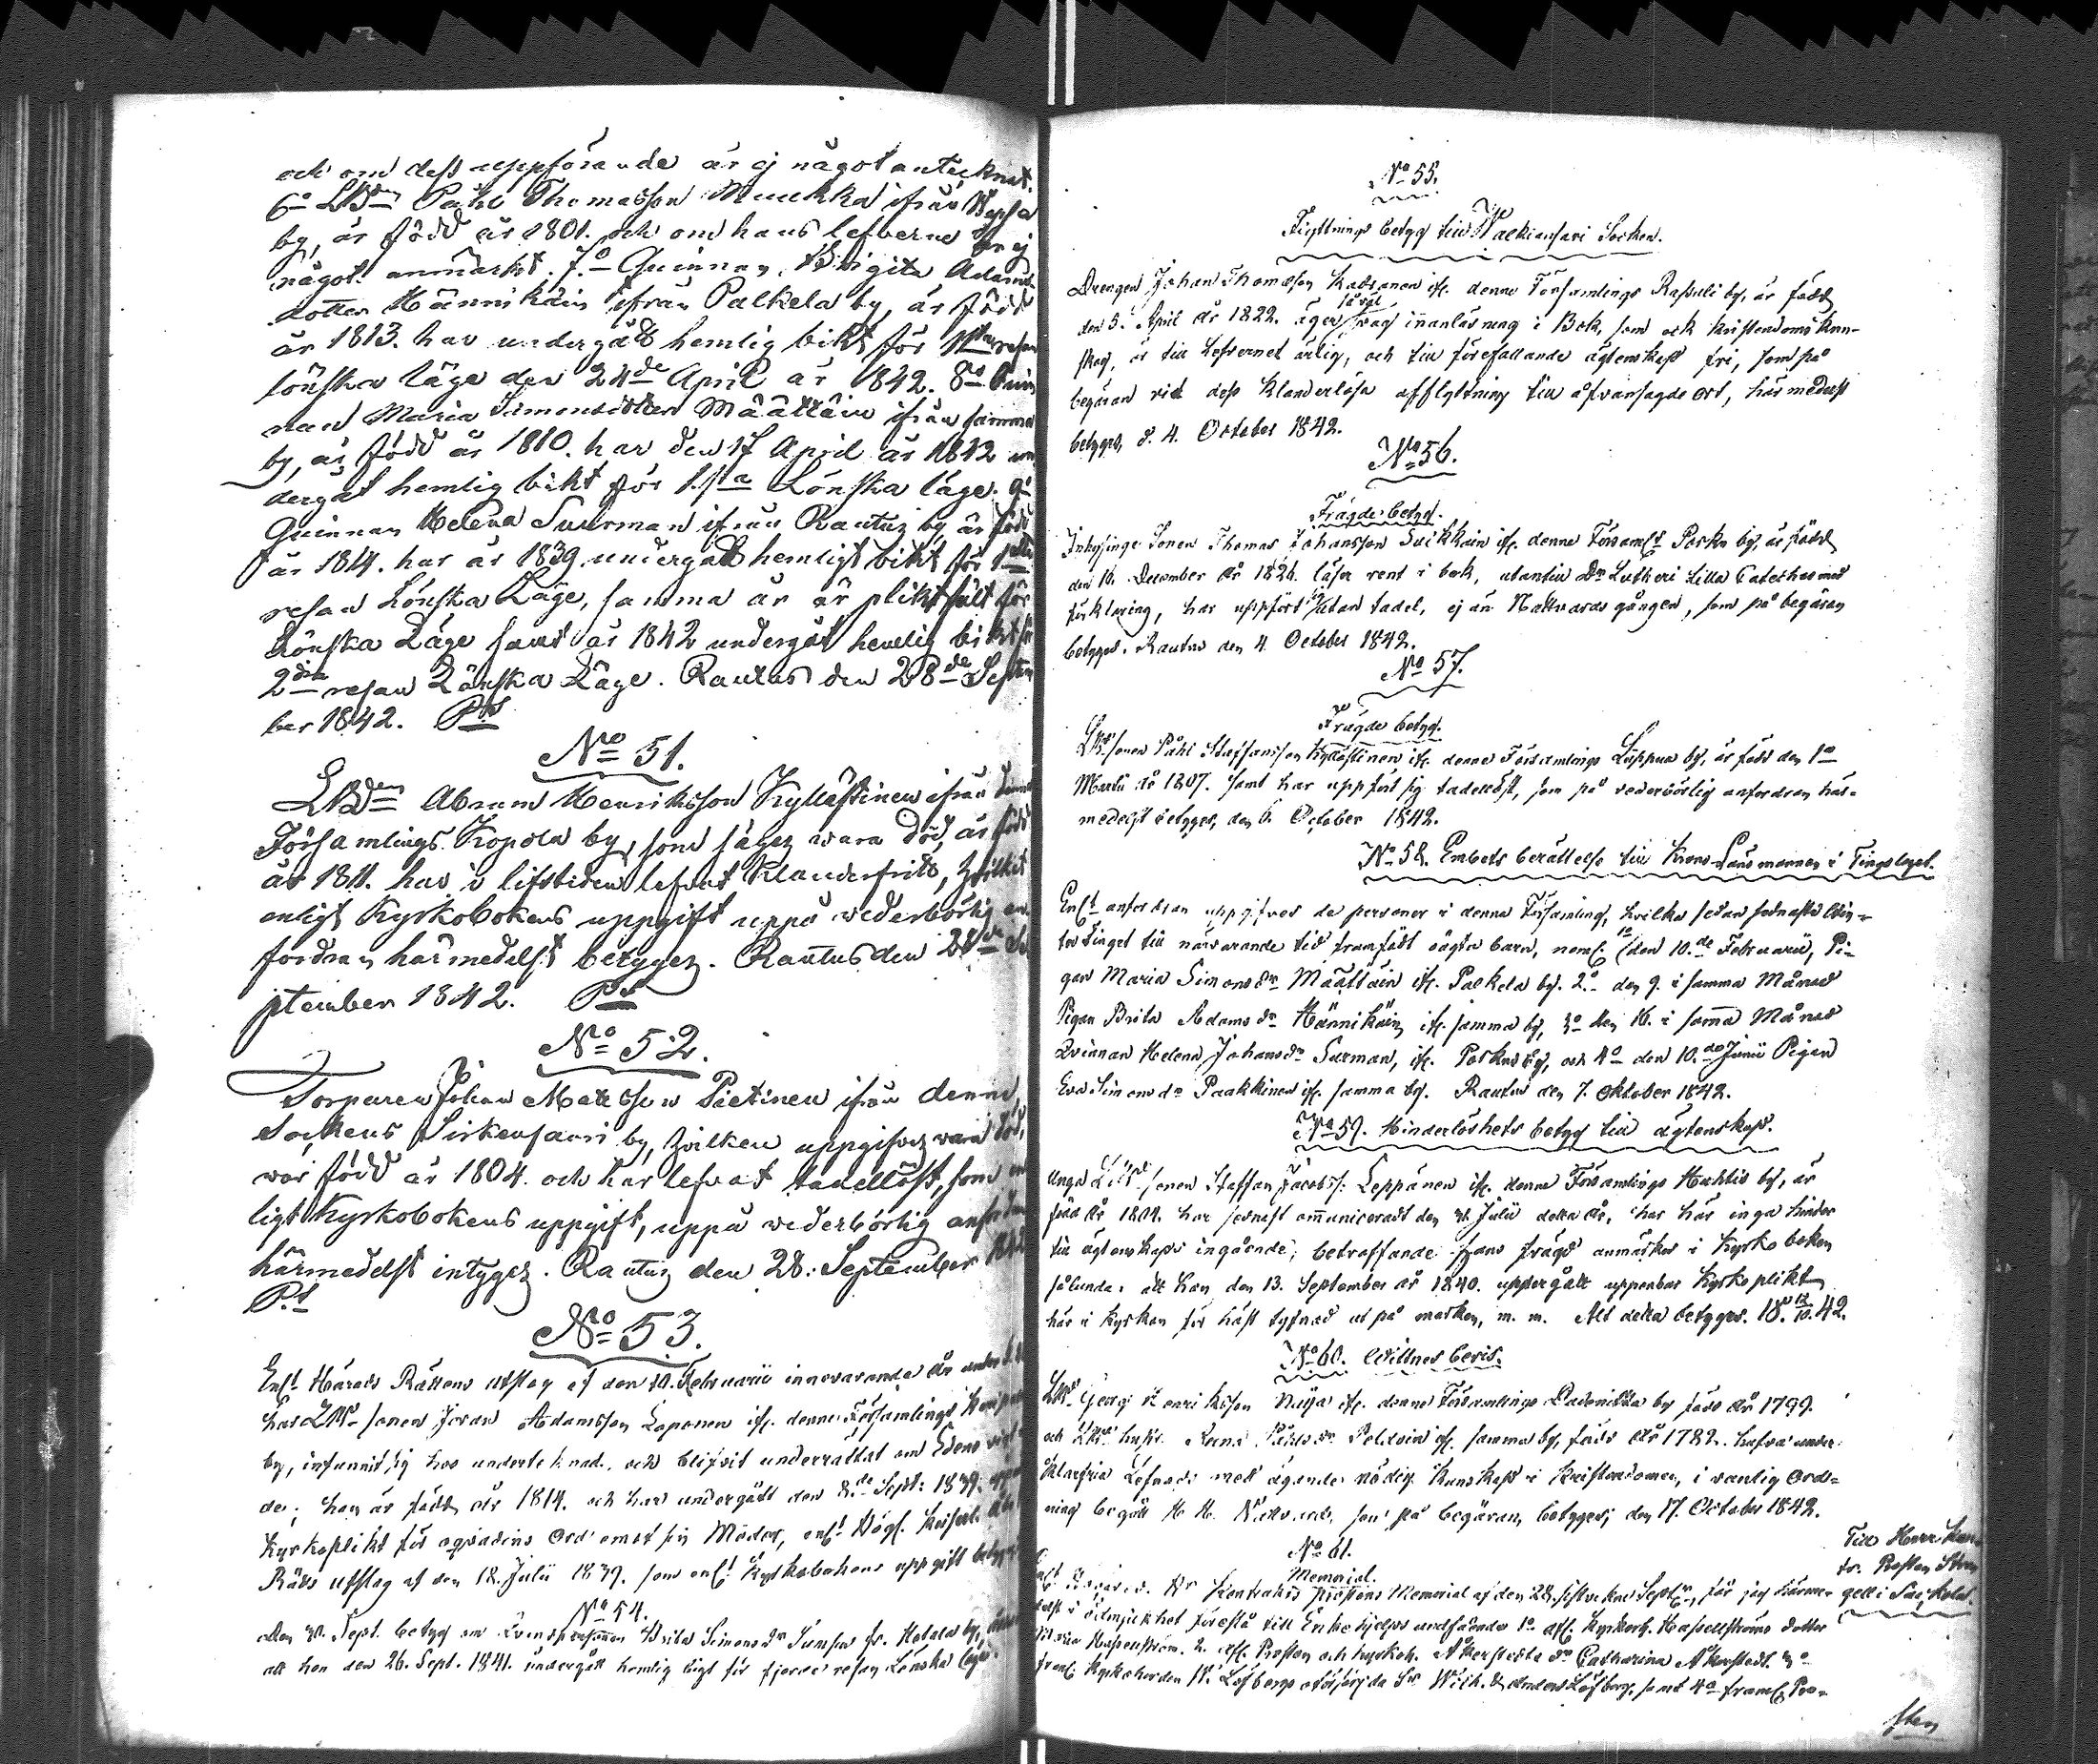 och om dess uppförande är ej något antecknat.
6o LBdn Påhl Thomasson Muukka ifrån Wepsa
by, är född år 1801. och om hans lefverne är ej
något anmärkt. 7.o Quinnan Birgita Adams
dotter Hännikäin ifrån Palkela by, är född
år 1813. har undergått hemlig bikt för 1sta resan
lönska läge den 24de April år 1842. 8o Quin
nan Maria Simonsdotter Määttäin ifrån samma
by, är född år 1810. har den 17 April år 1842 un
dergåt hemlig bikt för 1.sta Lönska läge. 9o
Quinnan Helena Suurman ifrån Rautus by, är född
år 1814. har år 1839. undergått hemligt bikt för 1sta
resan Lönska Läge, samma år är pliktfält för
Lönska Läge samt år 1842 undergåt hemlig bikt för
2dra resan Lönska Läge. Rautus den 28de Septem
ber 1842. Pst
No 51.
LBdn Abram Henriksson Kylläströinen ifrån denna
Församlings Kopola by, som säges wara död, är född
år 1811. har i lifstiden lefvat klanderfritt, hvilket
enligt Kyrkobokens uppgift uppå wederbörlig an
fordran härmedelst betyges. Rautus den 28de Se
ptember 1842. Pst
No 52.
Torparen Johan Matsson Pietinen ifrån denna
Sockens Sirkensaari by, hvilken uppgifves vara död,
war född år 1804. och har lefvat tadellöst, som en
ligt Kyrkobokens uppgift, uppå wederbörlig anfordran
härmedelst intyges. Rautus den 28: September 1842
Pst
No 53.
Enlt Härads Rättens utslag af den 10. Februarii innevarande år
har LBd sonen Jöran Adamsson Loponen if. denna Församlings
by, infunnit sig hos underteknad. och blifvit underrättat om Edens
de; han är född år 1814. och har undergått den 8.de Sept: 1839.
Kyrkoplikt för oqvädins ord emot sin Moder, enlt Högl. Keiserl.
Rätts utslag af den 18. Julii 1839. som enlt Kyrkobokens uppgift betyges
No 54.
Den 30. Sept. betyg om Qvinspersonen Brita Simonsdr Sumsa fr. Matala by,
att hon den 26. Sept. 1841. undergått hemlig bigt för fjerde resan Lönska läge.
No 55.
Flyttnings betyg till Walkiasari Socken.
Drengen Johan Thomasson if. denna Församlings Rassuli by, är född
den 5. April år 1822. äger såväl innanläsning i Bok, som ock kristendoms kun-
skap, är till Lefvernet ärlig, och till förefallande ägtenskap fri, som på
begäran vid dess klanderlösa afflyttning till ofvansagde ort, härmedelst
betyges, d. 4. October 1842.
No 56.
Frägde betyg.
Inhysinge Sonen Thomas Johansson Suikkain if. denna Församl Porkus by, är född
den 16. December år 1826. läser rent i bok, utantill Dr Lutheri Lilla Cateches med
förklaring, har uppfört sig utan tadel, ej än Nattvards gången, som på begäran
betyges. Rautus den 4. October 1842.
No 57.
Frägde betyg.
LBdsonen Påhl Staffansson if. denna Församlings Lippua by, är född den 1o
Martii år 1807. samt har uppfört sig tadellöst, som på vederbörlig anfordran här-
medelst betyges, den 6. October 1842.
No 58. Embets berättelse till Krono Länsmannen i Tingslaget.
Enlt anfordran uppgifves de personer i denna Församling, hvilka sedan sednaste Vin-
ter Tinget till närvarande tid framfödt oägta barn, neml. 1o den 10.de Februarii, Pi-
gan Maria Simonsdr Määttäin if. Palkela by. 2o den 9. i samma Månad
Pigan Brita Adamsdr Hännikäin if. samma by, 3o den 16. i samma Månad
Qvinnan Helena Johansdr Surman, if. Porkus by, och 4o den 10.de Junii Pigan
Eva Simonsdr Paakkinen if. samma by. Rautus den 7. Oktober 1842.
No 59. Hinderlöshets betyg till ägtenskap.
Unga LBd sonen Staffan Jacobss: Leppänen if. denna Församlings Huhtis by, är
född år 1804. har sednast communicerat den Julii detta år, har här inga hinder
till ägtenskaps ingående; betreffande hans frägd anmärkes i Kyrko boken
sålunda: att han den 13. September år 1840. undergått uppenbar Kyrkoplikt
här i Kyrkan för häst tyfnad ut på marken, m. m. Allt detta betyges. 18 12/10. 42.
No 60. Wittnes bevis.
LBd Georg Henriksson Näijä if. denna Församlings by född år 1799.
och LBds hustr. Anna Påhlsdr Peldoin if. samma by, född år 1782. hafva under
klanfria Lefnad med ägande nödig kunskap i Kristendomen, i vanlig Ord-
ning begått H. H. Nattvard, som på begäran, betyges; den 17. October 1842.
No 61.
Memorial.
Till Herr Kon
tr. Prosten Stran
gell i Sackola.
Kontrakts Prostens Memorial af den 28. sistvekne Septr, får jag härme-
delst i ödmjukhet föreslå till Enkehjelps undfående 1o afl. Kyrkoh. Hassellströms dotter
Hassellström. 2. afl. Prosten och kyrkoh. Åkerstedts dr Catharina Åkerstedt. 3o
framl. Kyrkoherden W. Löfbergs Löfberg, samt 4o framl. Pro-
sten